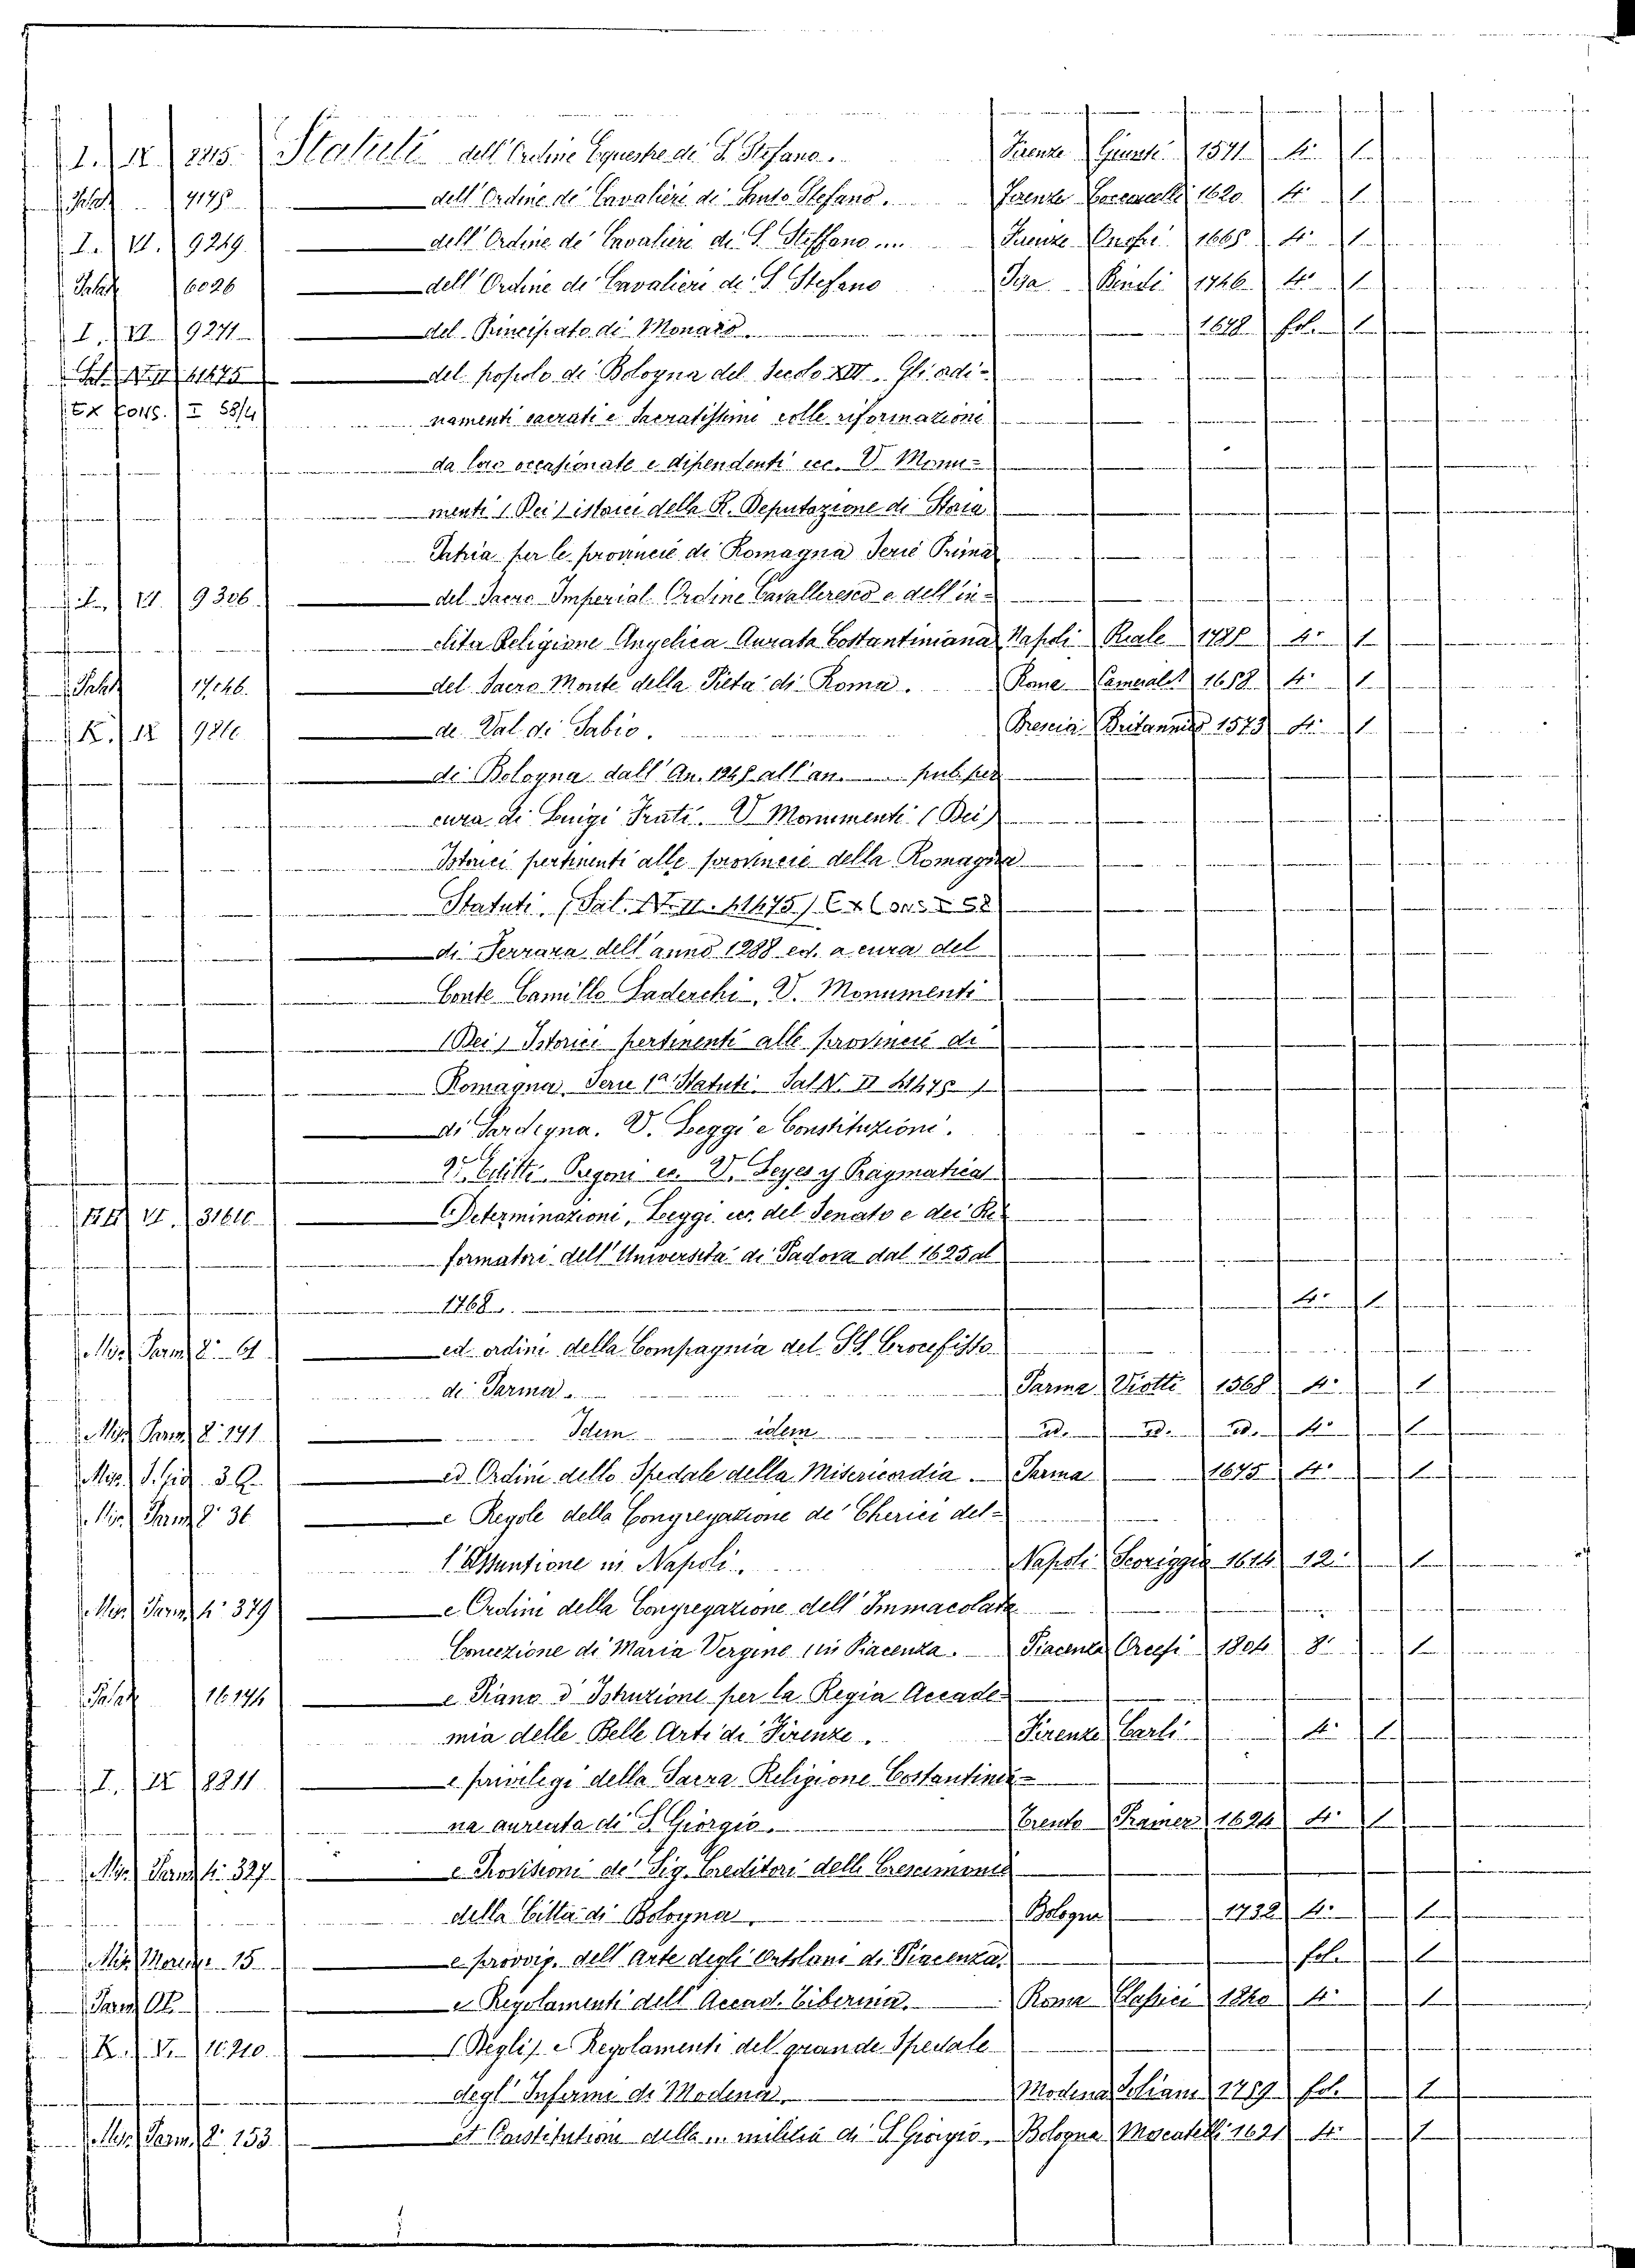 I. IX 2215. Statuti dell'Ordine Equestre di S. Stefano. Firenze Giunti 1571 4.° 1
Palat. dell'Ordine de' Cavalieri di Santo Stefano. Firenze 1620 4.° 1
I. VI. 9249. dell'Ordine de' Cavalieri di S. Steffano ... Firenze Onofri 1665 4.° 1
Palat. 6026 dell'Ordine de' Cavalieri di S. Stefano Pisa Bindi 1746 4.° 1
I. VI 9271 del Principato di Monaco. 1678 fol. 1
Sal. N. II 41475 del popolo di Bologna del Secolo XIII. Gli ordi-
Ex Cons. I 58/4 namenti sacrati e Sacratissimi colle riformazioni
da loro occasionate e dipendenti ecc. V. Monu-
menti (Dei) istorici della R. Deputazione di Storia
Patria per le provincie di Romagna Serie Prima
I. VI. 9306. del Sacro Imperial Ordine Cavalleresco e dell'in-
clita Religione Angelica Aurata Costantiniana Napoli Reale 1785 4.° 1
Palat. 17146. del Sacro Monte della Pietà di Roma. Roma Camerale 1618 4.° 1
K. IX 9816 di Val di Sabio. Brescia Britannico 1573 4.° 1
di Bologna dall'An. 1245 all'an. pub. per
cura di Luigi Frati. V. Monumenti (Dei)
Istorici pertinenti alle provincie della Romagna
Statuti. (Sal. N. II. 41475) Ex Cons I 58
di Ferrara dell'anno 1288 ed. a cura del
Conte Camillo Laderchi, V. Monumenti
(Dei) Istorici pertinenti alle provincie di
Romagna Serie 1ª Statuti. Sal N. II 41475)
di Sardegna. V. Leggi e Constituzioni.
V. Editti Pregoni ec. V. Leyes y Pragmaticas
VI. 31610 Determinazioni, Leggi ecc. del Senato e dei Ri-
formatori dell'Università di Padova dal 1625 al
1768. 4.° 1
Misc. Parm. 8.° 61 ed ordini della Compagnia del SS. Crocefisso
di Parma. Parma Viotti 1568 4.° 1
Misc. Parm. 8.° 141 Idem idem id. id. id. 4.° 1
Misc. ed Ordini dello Spedale della Misericordia. Parma 1675 4.° 1
Misc. Parm. 8.° 36 e Regole della Congregatione de' Cherici del-
l'Assuntione in Napoli. Napoli Scoriggio 1614 12.° 1
Misc. Parm. 4.° 379 e Ordini della Congregazione dell'Immacolata
Concezione di Maria Vergine in Piacenza. Piacenza Orcesi 1804 8.° 1
Palat. 16174 e Piano d'Istruzione per la Regia Accade-
mia delle Belle Arti di Firenze. Firenze Carli 4.° 1
I. IX 8811 e privilegi della Sacra Religione Costantinia-
na aurenta di S. Giorgio. Trento 1624 4.° 1
Misc. Parm. 4.° 327. e Provisioni de' Sig. Creditori delle Crescimonie
della Città di Bologna. Bologna 1732 4.° 1
Misc. 15 e provvig. dell'Arte degli Ortolani di Piacenza. fol. 1
Parm. e Regolamenti dell'Accad. Tiberina. Roma Classici 1840 4.° 1
K. V. 10210. (Degli) e Regolamenti del grande Spedale
degl'Infermi di Modena. Modena Soliani 1759 fol. 1
Misc. Parm. 8.° 153 et Constitutioni della ... militia di S. Giorgio. Bologna Moscatelli 1621 4.° 1